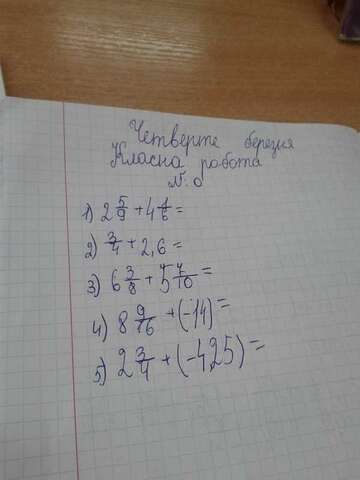 Четверте березня
Класна робота
№ 0
1) 2 5/9 + 4 1/6 =
2) 3/4 + 2,6 =
3) 6 3/8 + 5 7/10 =
4) 8 9/16 + (-14) =
5) 2 3/4 + (-4,25) =